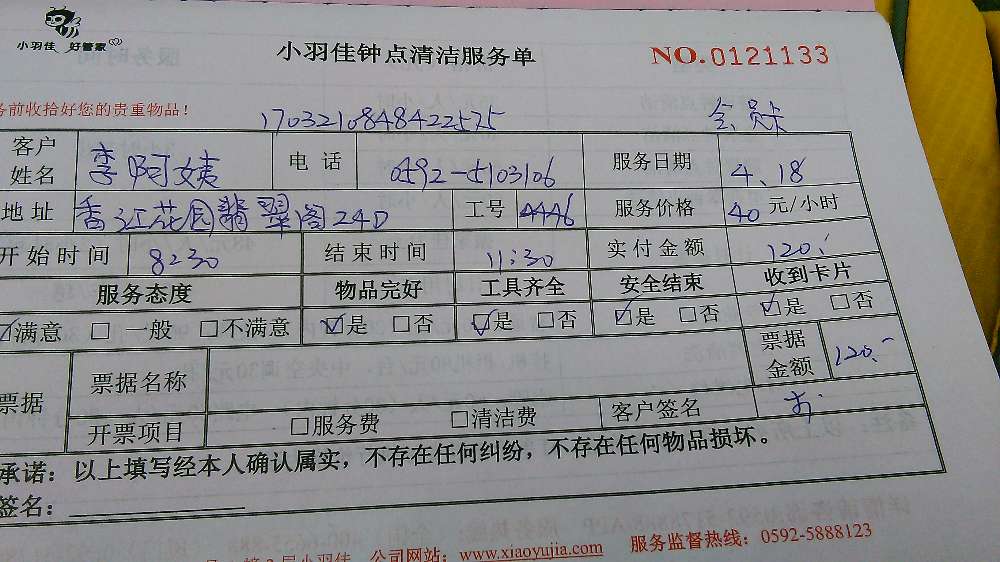 小羽佳 好管家
小羽佳钟点清洁服务单 NO.0121133
务前收拾好您的贵重物品！
1703210848422575 会员卡
客户姓名 李阿姨 电话 0592-5103106 服务日期 4、18
地址 香江花园翡翠阁24D 工号 4446 服务价格 40元/小时
开始时间 8:30 结束时间 11:30 实付金额 120.-
服务态度 物品完好 工具齐全 安全结束 收到卡片
☑满意 □一般 □不满意 ☑是 □否 ☑是 □否 ☑是 □否 ☑是 □否
票据 票据名称 票据金额 120.-
开票项目 □服务费 □清洁费 客户签名
承诺：以上填写经本人确认属实，不存在任何纠纷，不存在任何物品损坏。
签名：
楼小羽佳 公司网站：www.xiaoyujia.com 服务监督热线：0592-5888123